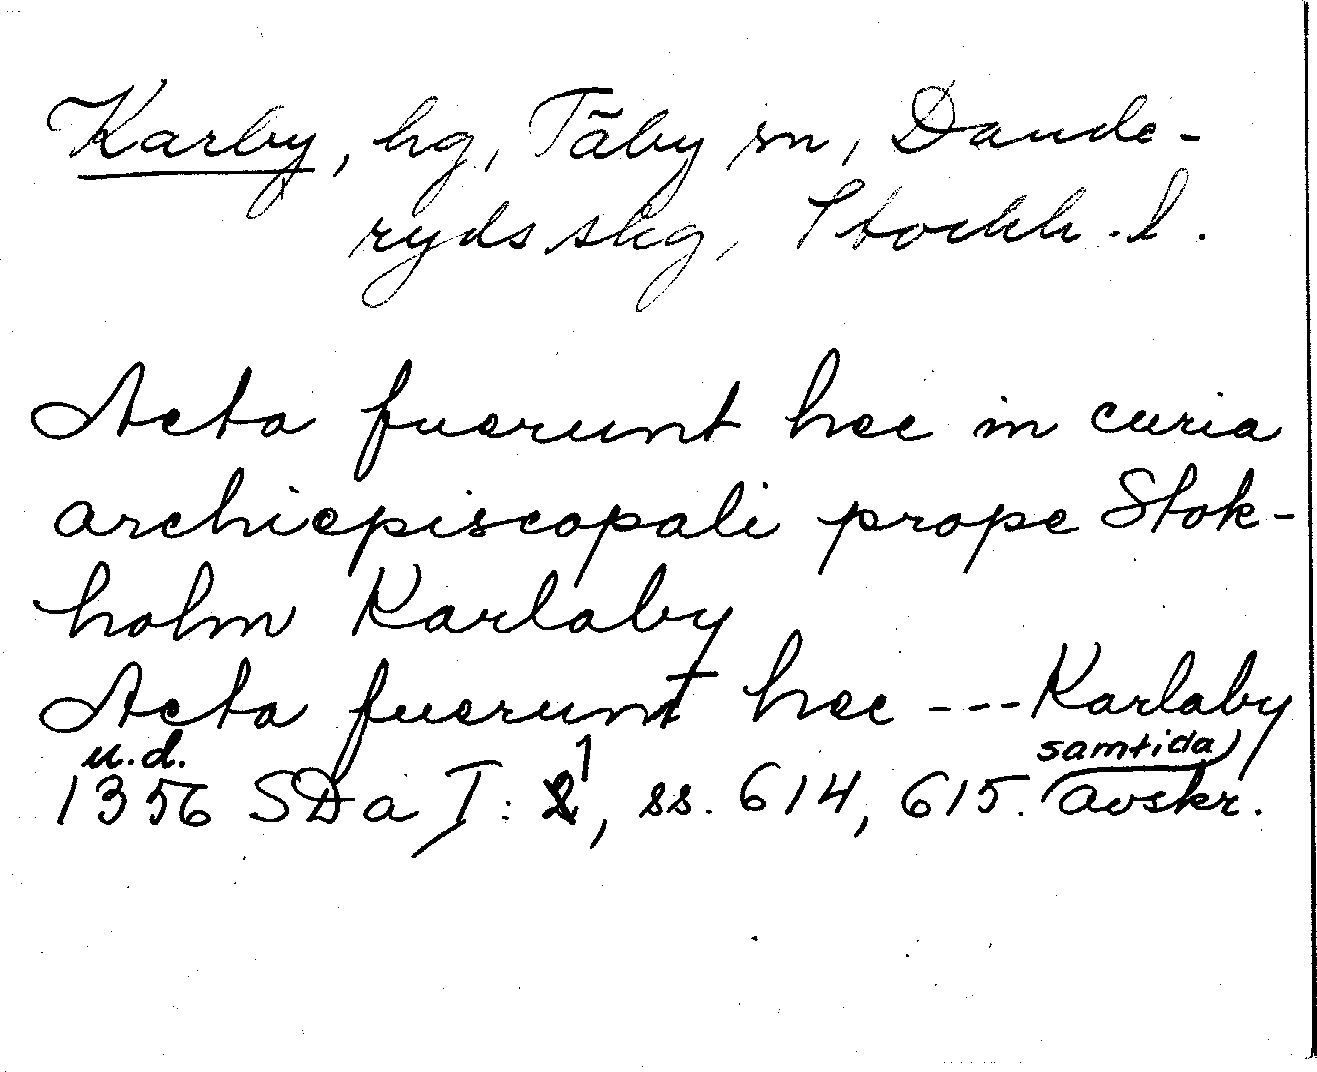 Karby, hg, Täby sn, Dande-
ryds skg, Stockh. l.
Acta fuerunt hec in curia
archiepiscopali prope Stok-
holm Karlaby
Acta fuerunt hec --- Karlaby
u.d. 1 samtida)
1356 SDa I: 2, ss. 614, 615. avskr.